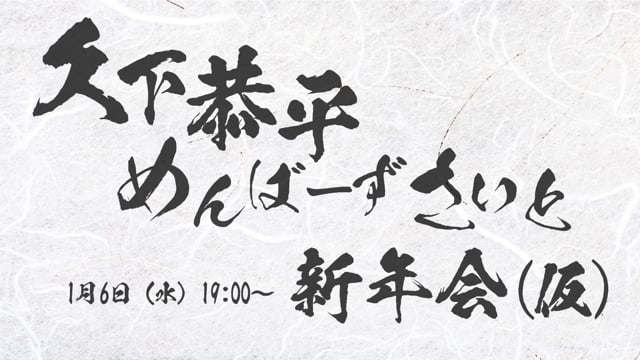 久下恭平
めんばーずさいと
1月6日（水）19:00～ 新年会(仮)